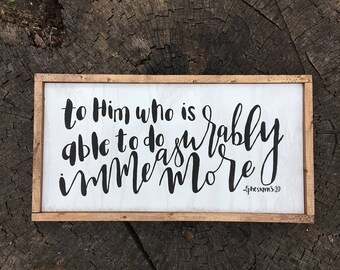 to Him who is
able to do immeasurably
more
-Ephesians 3:20